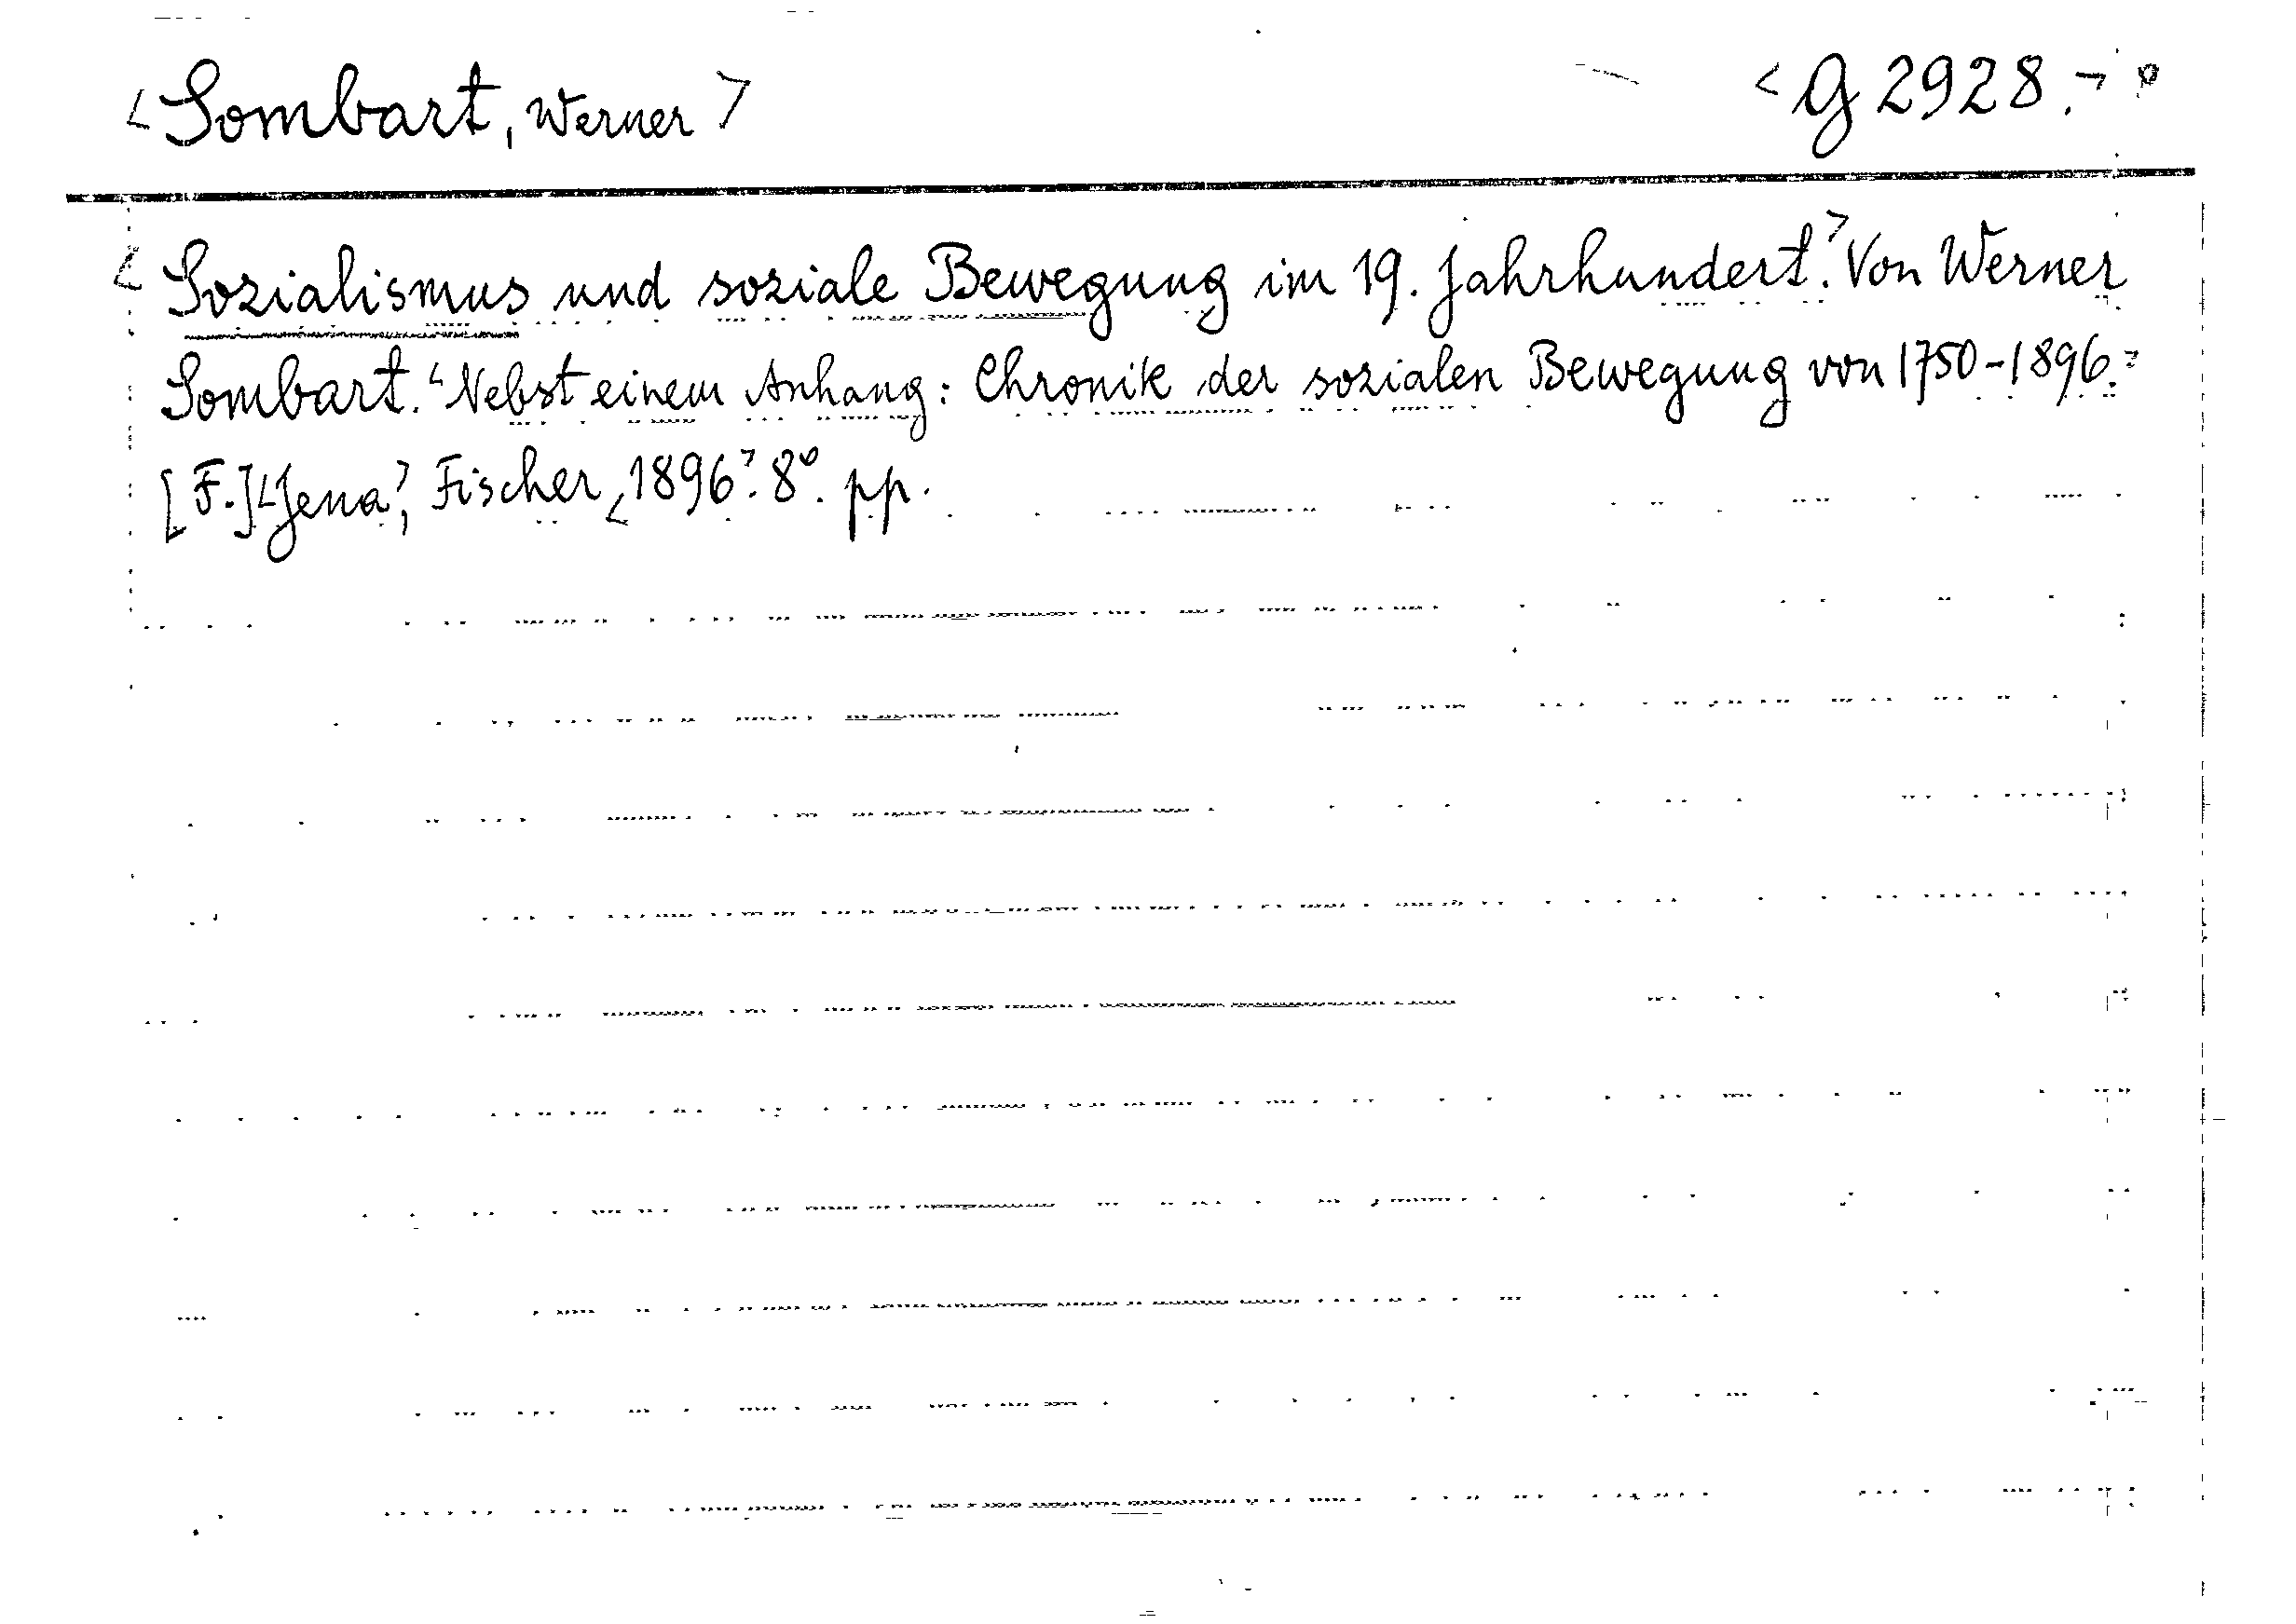 <Sombart, Werner> <G 2928.>
<Sozialismus und soziale Bewegung im 19. Jahrhundert.> Von Werner
Sombart. <Nebst einem Anhang: Chronik der sozialen Bewegung von 1750-1896.>
[F.] <Jena>, Fischer, <1896>. 8°. pp.